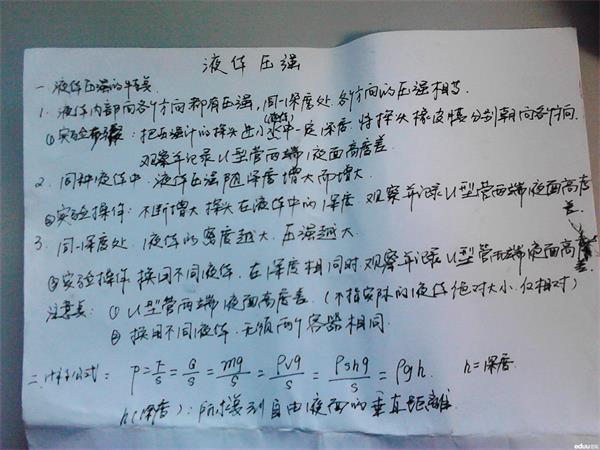 液体压强
一、液体压强的特点
1. 液体内部向各个方向都有压强,同一深度处,各个方向的压强相等.
①实验操作: 把压强计的探头进入水中一定深度,将探头橡皮膜分别朝向各个方向.
观察并记录U型管两端液面高度差.
2. 同种液体中,液体压强随深度增大而增大.
②实验操作: 不断增大探头在液体中的深度,观察并记录U型管两端液面高度差.
3. 同一深度处,液体的密度越大,压强越大.
③实验操作 换用不同液体,在深度相同时,观察并记录U型管两端液面高度差.
注意: ① U型管两端液面高度差.(不指实际的液体绝对大小,仅相对)
② 换用不同液体,无须两个容器相同.
二、计算公式: P=F/S=G/S=mg/S=ρVg/S=ρshg/S=ρgh. h=深度.
h(深度): 所到自由液面的垂直距离.
eduu